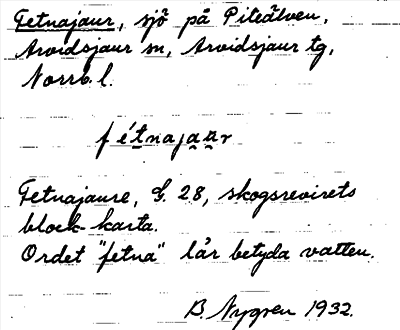 Fetnajaur, sjö på Piteälven,
Arvidsjaur sn, Arvidsjaur tg,
Norrb. l.
fétnajau̯r
Fetnajaure, G. 28, skogsrevirets
block-karta.
Ordet "fetna" lår betyda vatten.
B. Nygren 1932.